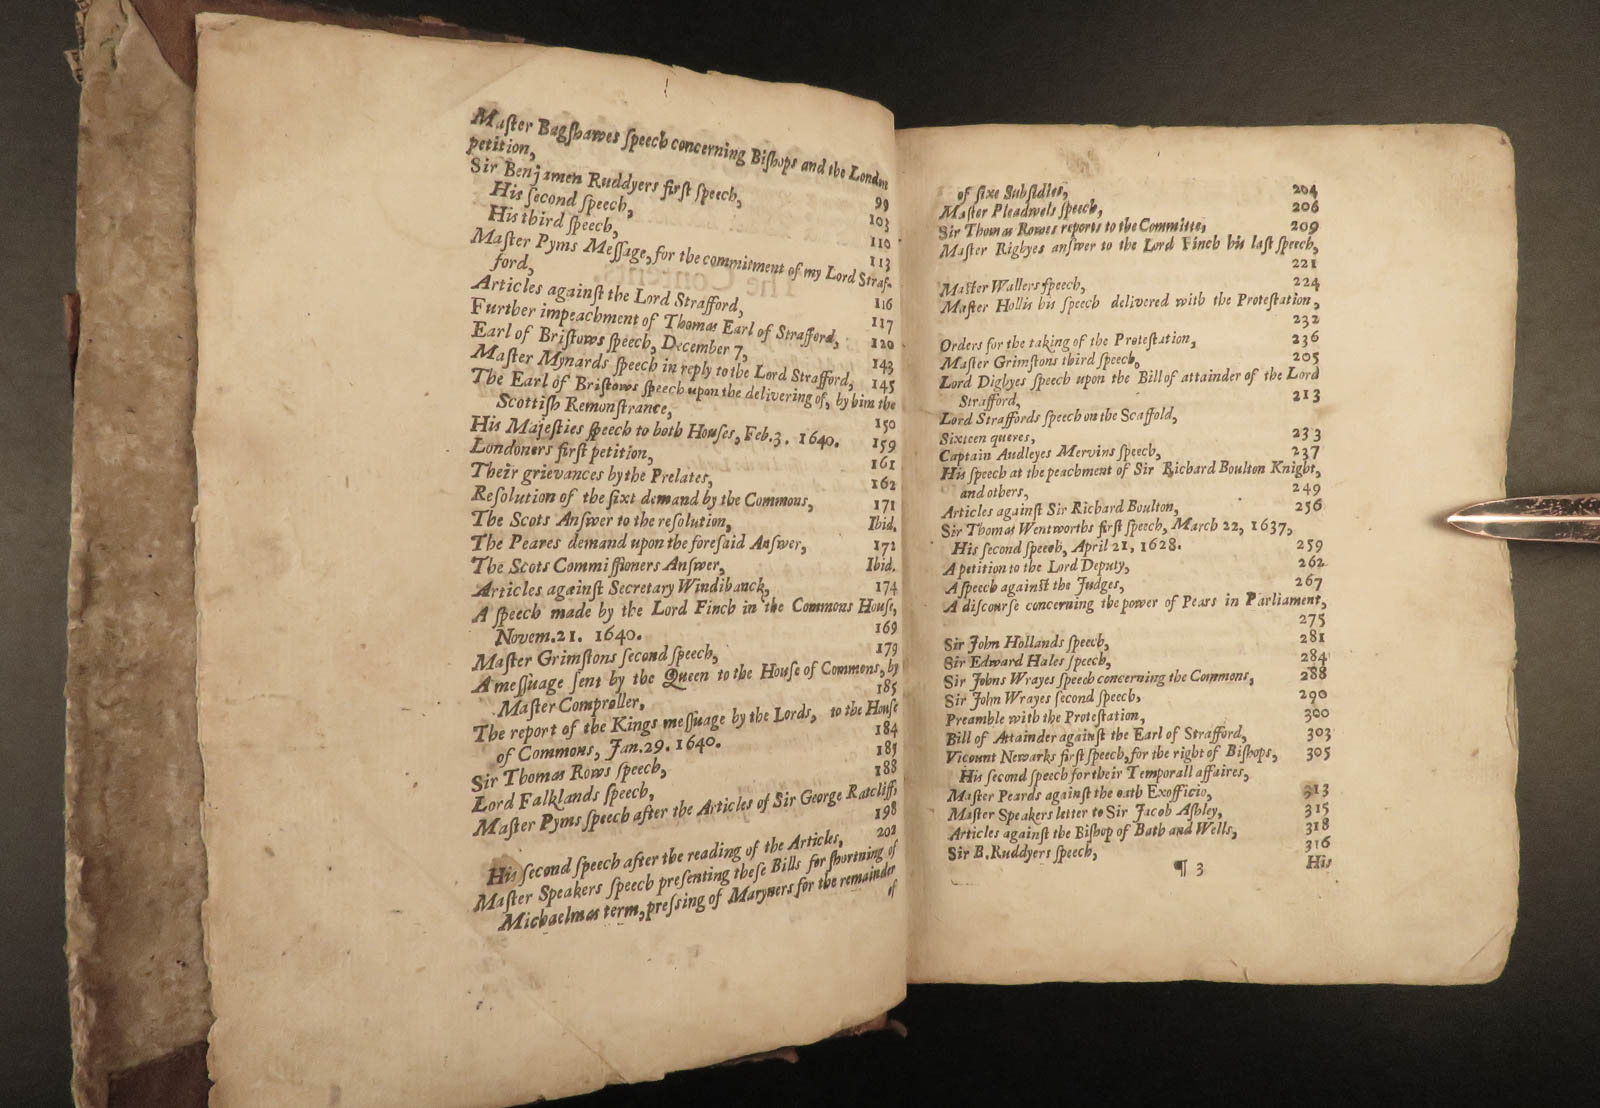 Maſter Bagſhawes ſpeech concerning Biſhops and the London
petition, 99
Sir Benjamen Ruddyers firſt ſpeech, 103
His ſecond ſpeech, 110
His third ſpeech, 113
Maſter Pyms Meſſage, for the commitment of my Lord Straf-
ford, 116
Articles againſt the Lord Strafford, 117
Further impeachment of Thomas Earl of Strafford, 120
Earl of Briſtows ſpeech, December 7, 143
Maſter Mynards ſpeech in reply to the Lord Strafford, 145
The Earl of Briſtows ſpeech upon the delivering of, by him the
Scottiſh Remonſtrance, 150
His Majeſties ſpeech to both Houſes, Feb. 3. 1640. 159
Londoners firſt petition, 161
Their grievances by the Prelates, 162
Reſolution of the ſixt demand by the Commons, 171
The Scots Anſwer to the reſolution, Ibid.
The Peares demand upon the foreſaid Anſwer, 172
The Scots Commiſſioners Anſwer, Ibid.
Articles againſt Secretary Windibanck, 174
A ſpeech made by the Lord Finch in the Commons Houſe,
Novem. 21. 1640. 169
Maſter Grimſtons ſecond ſpeech, 179
A meſſuage ſent by the Queen to the Houſe of Commons, by
Maſter Comproller, 185
The report of the Kings meſſuage by the Lords, to the Houſe
of Commons, Jan. 29. 1640. 184
Sir Thomas Rows ſpeech, 185
Lord Falklands ſpeech, 188
Maſter Pyms ſpeech after the Articles of Sir George Ratcliff,
198
His ſecond ſpeech after the reading of the Articles, 202
Maſter Speakers ſpeech preſenting theſe Bills for ſhortning of
Michaelmas term, preſsing of Maryners for the remainder
of
of ſixe Subſidies, 204
Maſter Pleadwels ſpeech, 206
Sir Thomas Rowes reports to the Committe, 209
Maſter Rigbyes anſwer to the Lord Finch his laſt ſpeech,
221
Maſter Wallers ſpeech, 224
Maſter Hollis his ſpeech delivered with the Proteſtation,
232
Orders for the taking of the Proteſtation, 236
Maſter Grimſtons third ſpeech, 205
Lord Digbyes ſpeech upon the Bill of attainder of the Lord
Strafford, 213
Lord Straffords ſpeech on the Scaffold,
Sixteen queres, 233
Captain Audleyes Mervins ſpeech, 237
His ſpeech at the peachment of Sir Richard Boulton Knight,
and others, 249
Articles againſt Sir Richard Boulton, 256
Sir Thomas Wentworths firſt ſpeech, March 22, 1637,
His ſecond ſpeech, April 21, 1628. 259
A petition to the Lord Deputy, 262
A ſpeech againſt the Judges, 267
A diſcourſe concerning the power of Pears in Parliament,
275
Sir John Hollands ſpeech, 281
Sir Edward Hales ſpeech, 284
Sir Johns Wrayes ſpeech concerning the Commons, 288
Sir John Wrayes ſecond ſpeech, 290
Preamble with the Proteſtation, 300
Bill of Attainder againſt the Earl of Strafford, 303
Vicount Newarks firſt ſpeech, for the right of Biſhops, 305
His ſecond ſpeech for their Temporall affaires,
Maſter Peards againſt the oath Exofficio, 313
Maſter Speakers letter to Sir Jacob Aſhley, 315
Articles againſt the Biſhop of Bath and Wells, 318
Sir B. Ruddyers ſpeech, 316
¶ 3 His